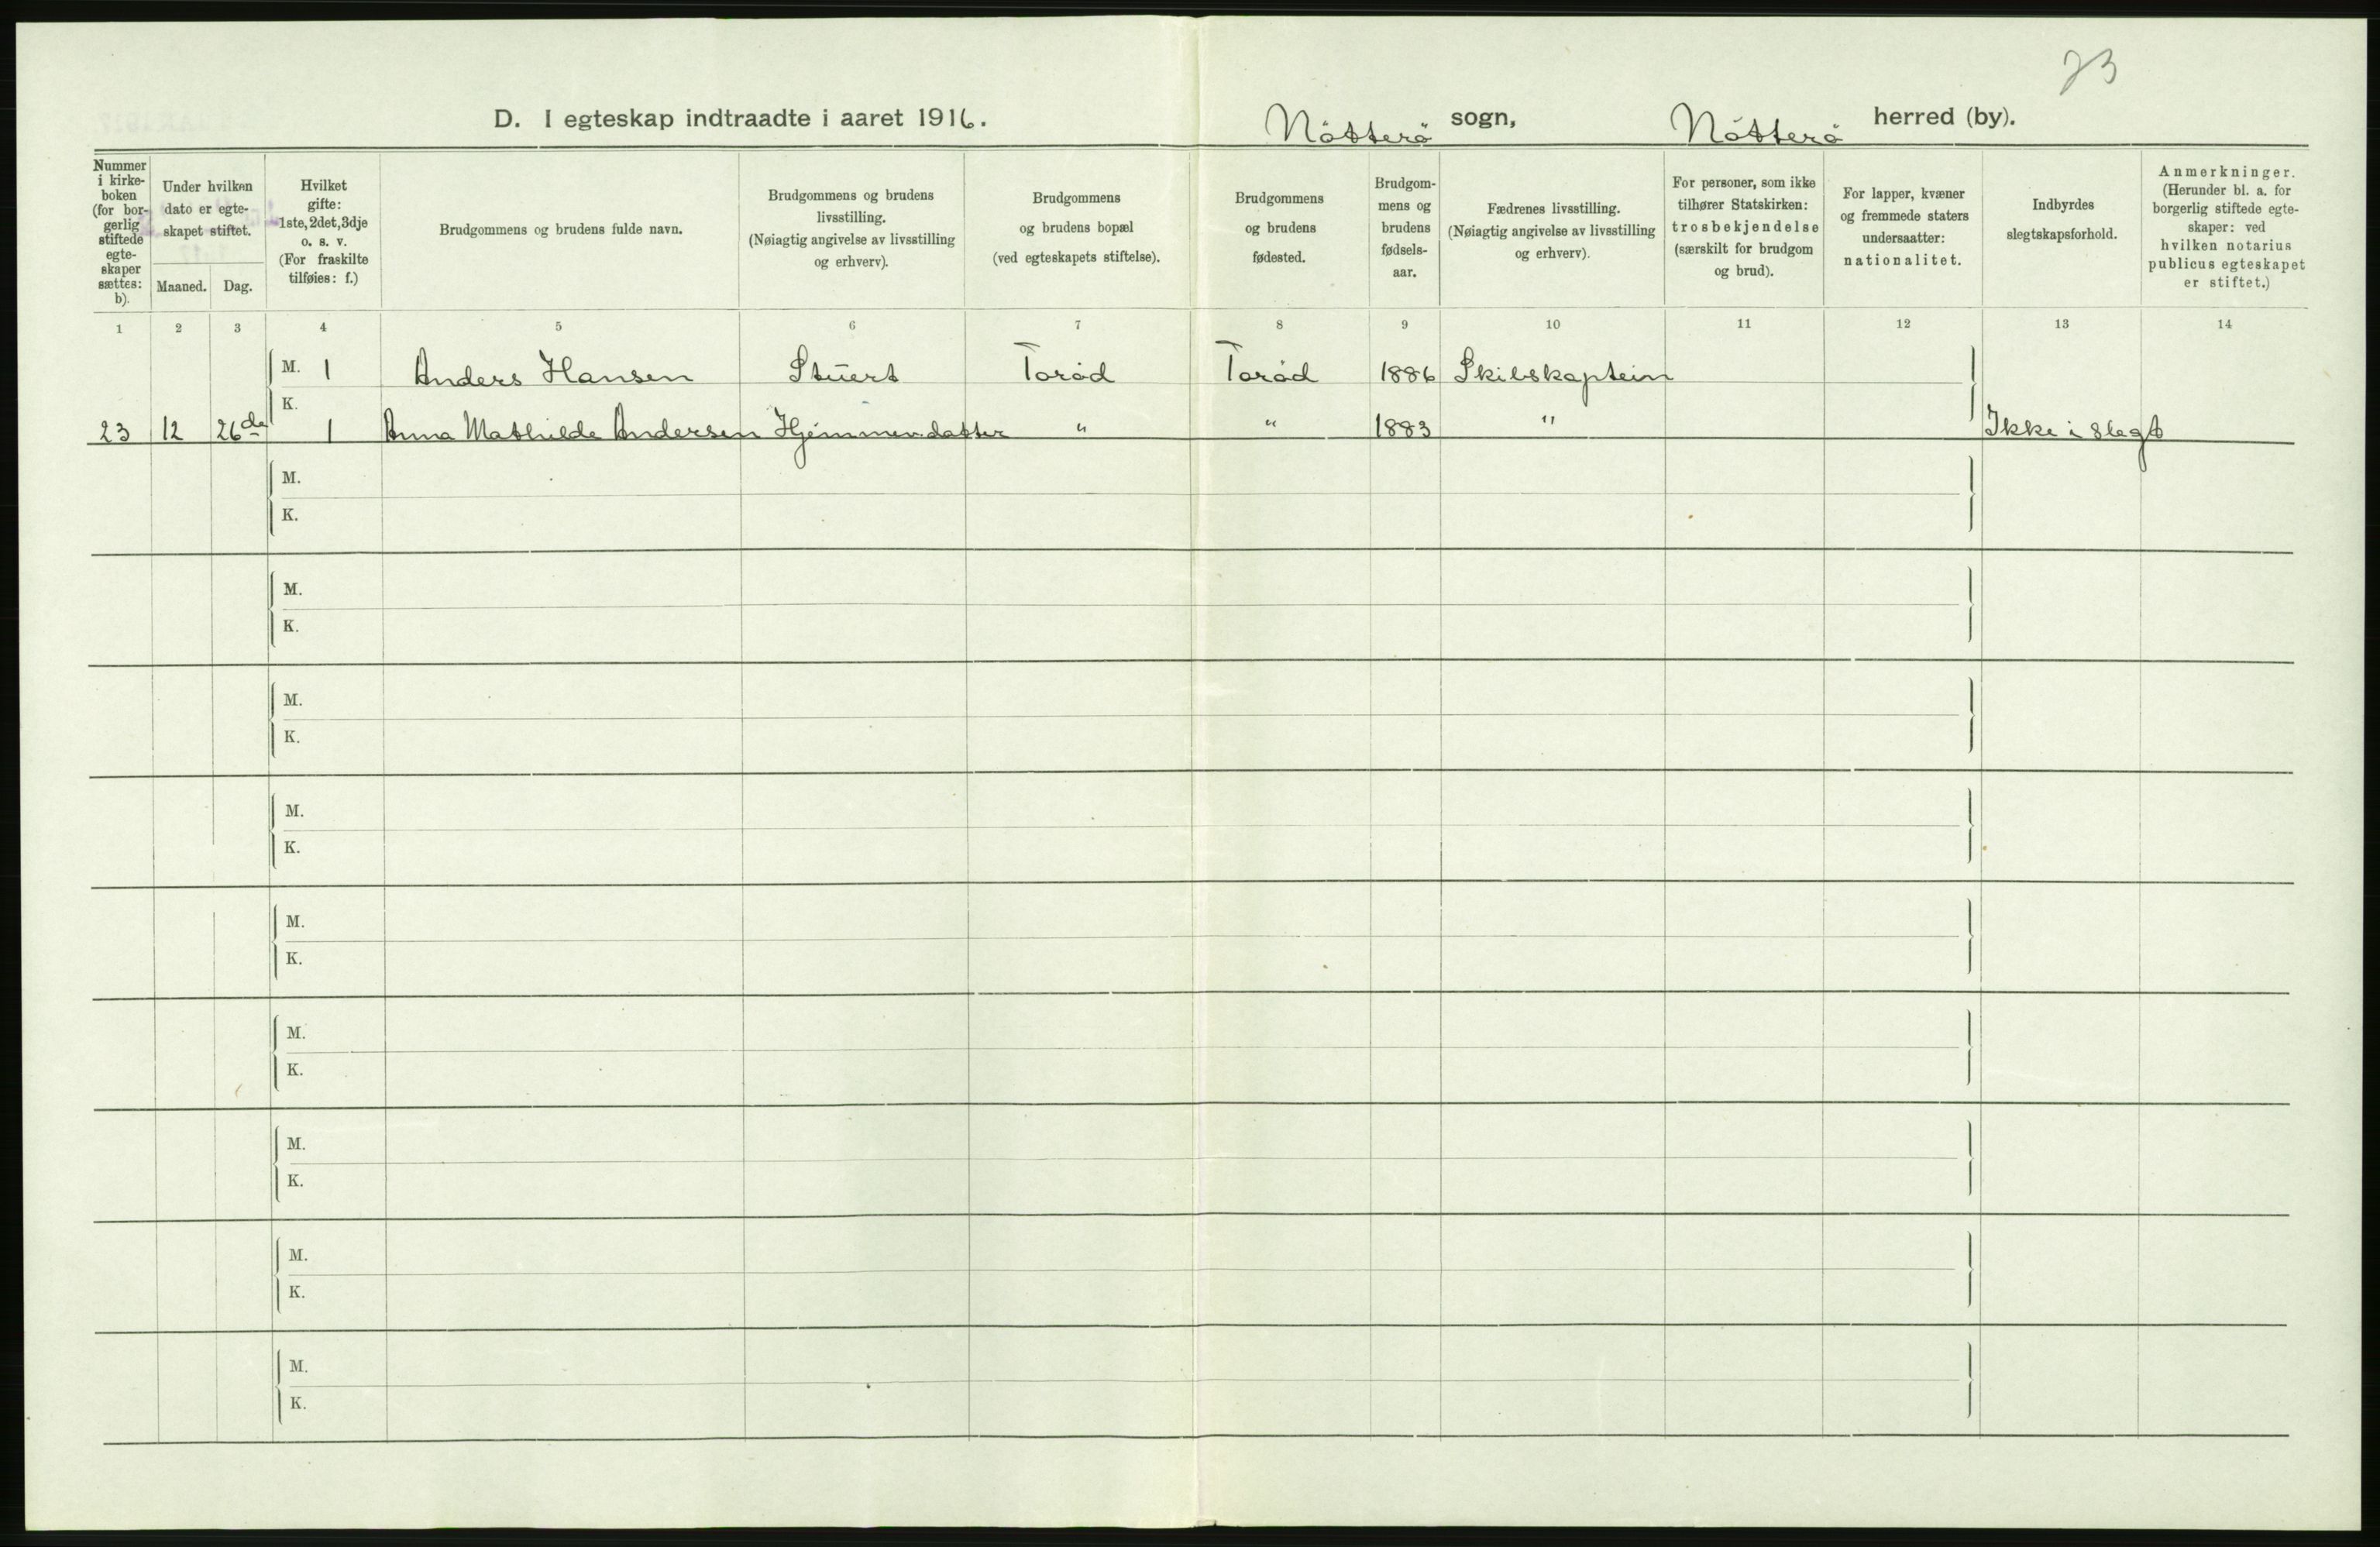 23
D. I egteskap indtraadte i aaret 1916. Nötterö sogn, Nötterö herred (by).
Nummer i kirke-boken (for bor-gerlig stiftede egte-skaper sættes: b).
Under hvilken dato er egte-skapet stiftet.
Maaned. Dag.
Hvilket gifte: 1ste, 2det, 3dje o. s. v. (For fraskilte tilføies: f.)
Brudgommens og brudens fulde navn.
Brudgommens og brudens livsstilling. (Nøiagtig angivelse av livsstilling og erhverv).
Brudgommens og brudens bopæl (ved egteskapets stiftelse).
Brudgommens og brudens fødested.
Brudgom-mens og brudens fødsels-aar.
Fædrenes livsstilling. (Nøiagtig angivelse av livsstilling og erhverv).
For personer, som ikke tilhører Statskirken: trosbekjendelse (særskilt for brudgom og brud).
For lapper, kvæner og fremmede staters undersaatter: nationalitet.
Indbyrdes slegtskapsforhold.
Anmerkninger. (Herunder bl. a. for borgerlig stiftede egte-skaper: ved hvilken notarius publicus egteskapet er stiftet.)
1 2 3 4 5 6 7 8 9 10 11 12 13 14
M. 1 Anders Hansen Stüert Toröd Toröd 1886 Skibskaptein
K.
23 12 26de 1 Anna Mathilde Andersen Hjemmendatter " " 1883 " Ikke i slegt
M.
K.
M.
K.
M.
K.
M.
K.
M.
K.
M.
K.
M.
K.
M.
K.
M.
K.